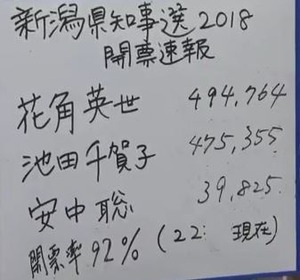 新潟県知事選2018
開票速報
花角英世 494,764
池田千賀子 475,355
安中聡 39,825
開票率92% (22: 現在)